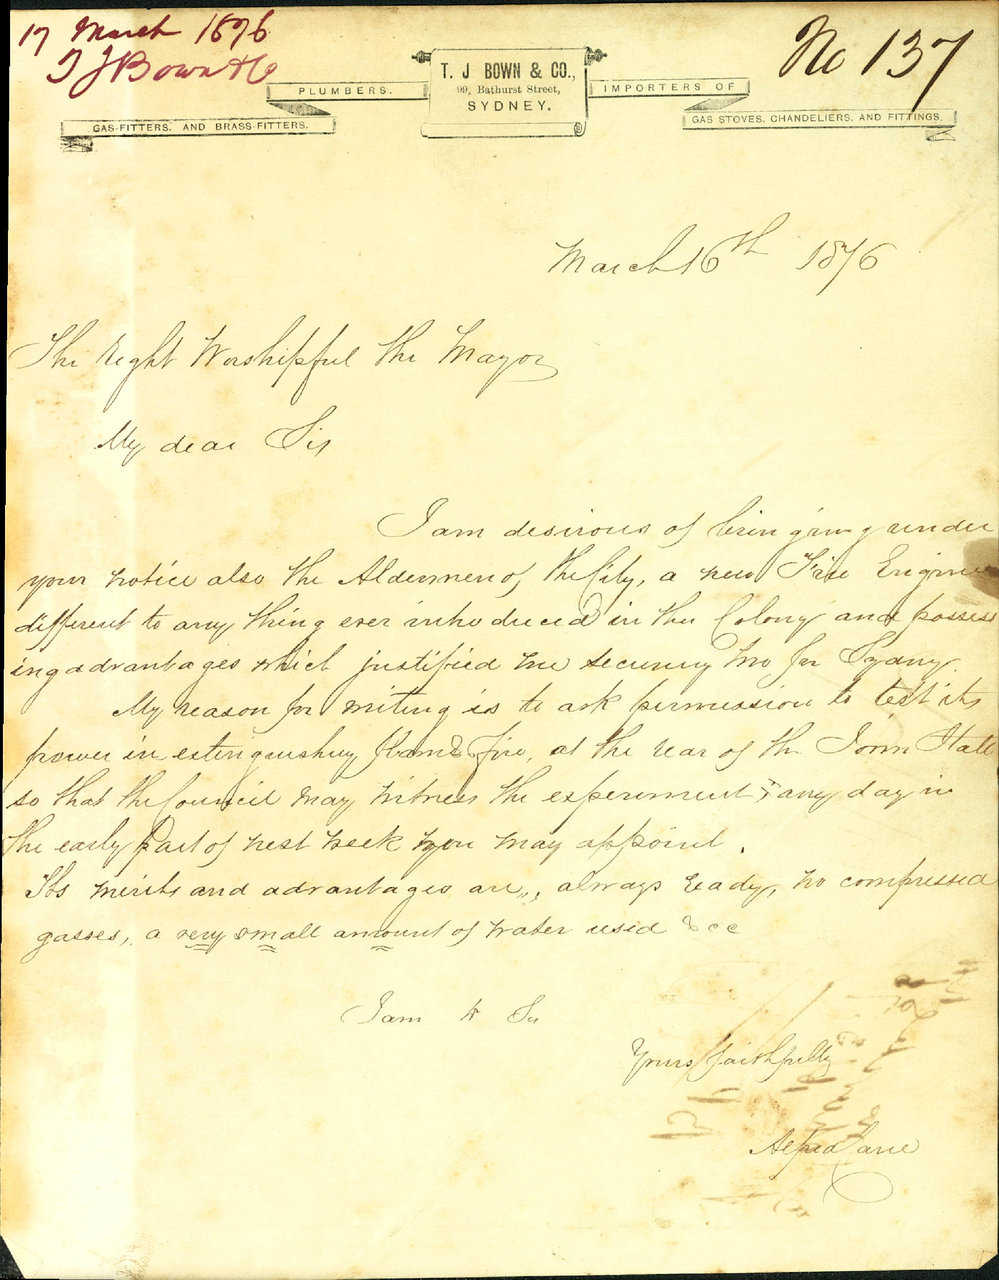 17 March 1876
T J Bown & Co
No 137
T. J BOWN & CO.,
99, Bathurst Street,
SYDNEY.
PLUMBERS.
GAS-FITTERS. AND BRASS-FITTERS.
IMPORTERS OF
GAS STOVES. CHANDELIERS. AND FITTINGS.
March 16th 1876
The Right Worshipful the Mayor
My dear Sir
I am desirous of bringing under
your notice also the Aldermen of the City, a new Fire Engine
different to any thing ever introduced in the Colony and possess
ing advantages which justified me securing two for Sydney.
My reason for writing is to ask permission to test its
power in extinguishing flame & fire, at the rear of the Town Hall
so that the Council may witness the experiment, any day in
the early Part of next week you may appoint.
Its merits and advantages are, always ready, no compressed
gasses, a very small amount of water used &cc
I am Sir
Yours faithfully
Alfred